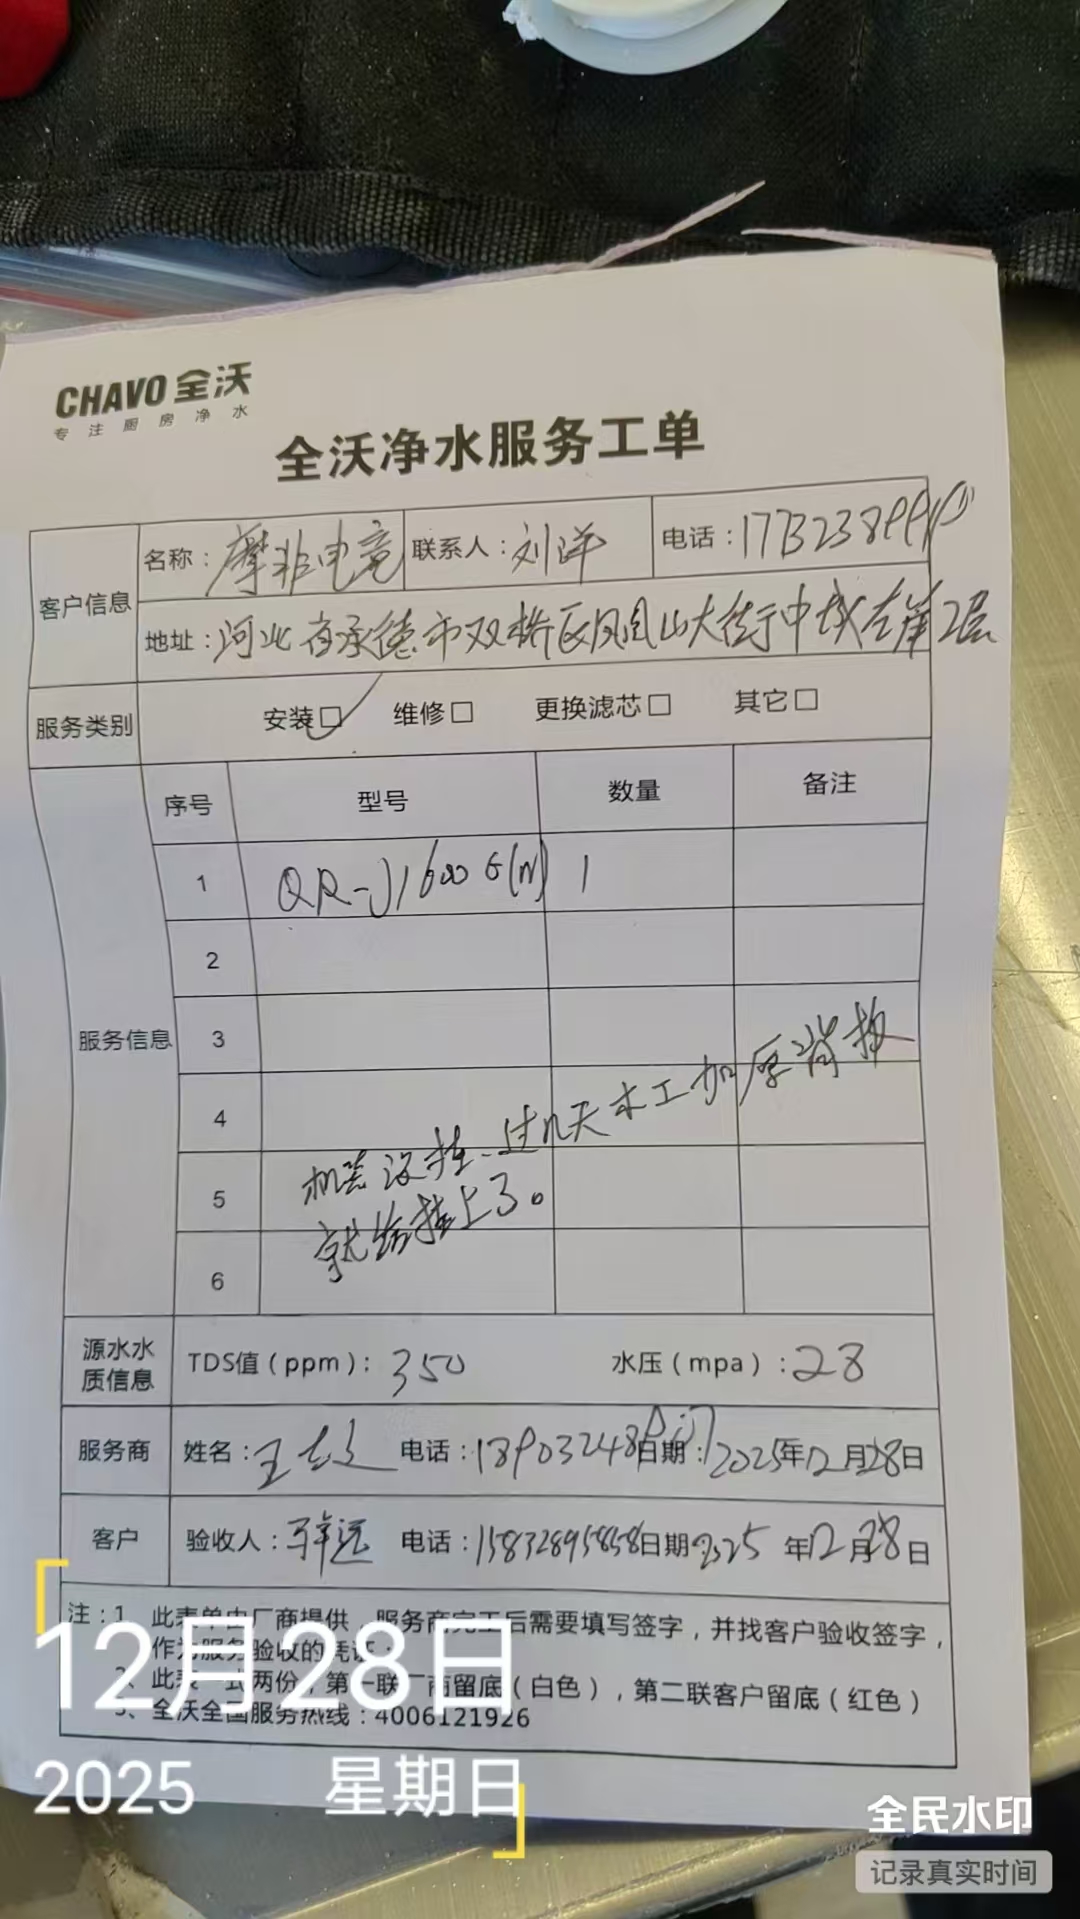 CHAVO 全沃
专注厨房净水
全沃净水服务工单
客户信息
名称：摩非电竞 联系人：刘洋 电话：1773238
地址：河北省承德市双桥区凤凰山大街于中城左岸2层
服务类别 安装☑ 维修□ 更换滤芯□ 其它□
服务信息
序号 型号 数量 备注
1 QR-J1600G(N) 1
2
3
4
5
6
机器没挂、过几天木工加厚背板
就给挂上了。
源水水质信息 TDS值（ppm）：350 水压（mpa）：28
服务商 姓名：王 电话：18903248 日期：2025年12月28日
客户 验收人： 电话：15832895858 日期 2025年12月28日
注：1、此表单由厂商提供，服务商完工后需要填写签字，并找客户验收签字，
作为服务验收的凭证；
2、此表一式两份，第一联厂商留底（白色），第二联客户留底（红色）
3、全沃全国服务热线：4006121926
12月28日
2025 星期日
全民水印
记录真实时间